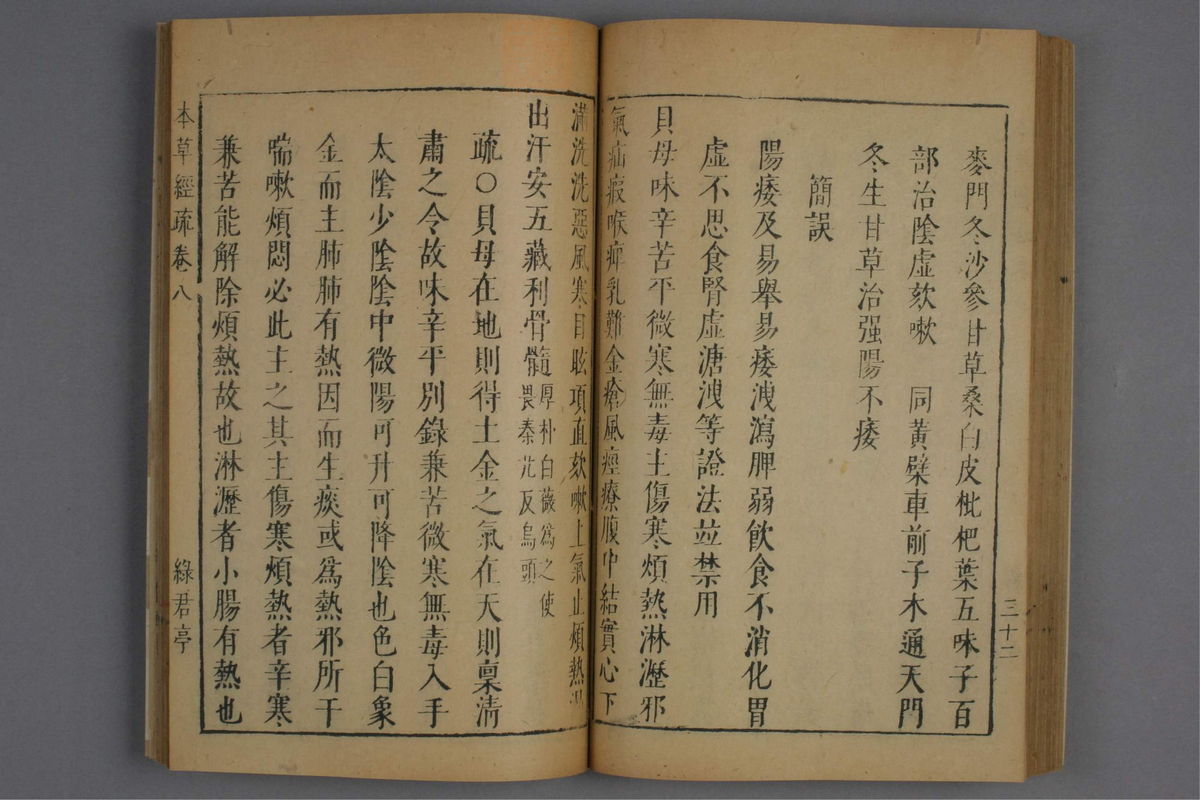 麥門冬沙參甘草桑白皮枇杷葉五味子百
部治陰虛欬嗽　同黃檗車前子木通天門
冬生甘草治强陽不痿
簡誤
陽痿及易舉易痿洩瀉脾弱飲食不消化胃
虛不思食腎虛溏洩等證法並禁用
貝母味辛苦平微寒無毒主傷寒煩熱淋瀝邪
氣疝瘕喉痺乳難金瘡風痙療腹中結實心下
三十二
滿洗洗惡風寒目眩項直欬嗽上氣止煩熱渴
出汗安五藏利骨髓厚朴白薇爲之使
畏秦艽反烏頭
疏○貝母在地則得土金之氣在天則稟清
肅之令故味辛平別錄兼苦微寒無毒入手
太陰少陰陰中微陽可升可降陰也色白象
金而主肺肺有熱因而生痰或爲熱邪所干
喘嗽煩悶必此主之其主傷寒煩熱者辛寒
兼苦能解除煩熱故也淋瀝者小腸有熱也
本草經疏　卷八　綠君亭